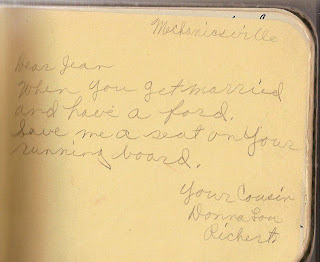 Mechanicsville
Dear Jean
When you get married
and have a ford.
Save me a seat on your
running board.
Your Cousin
Donna Lou
Richert